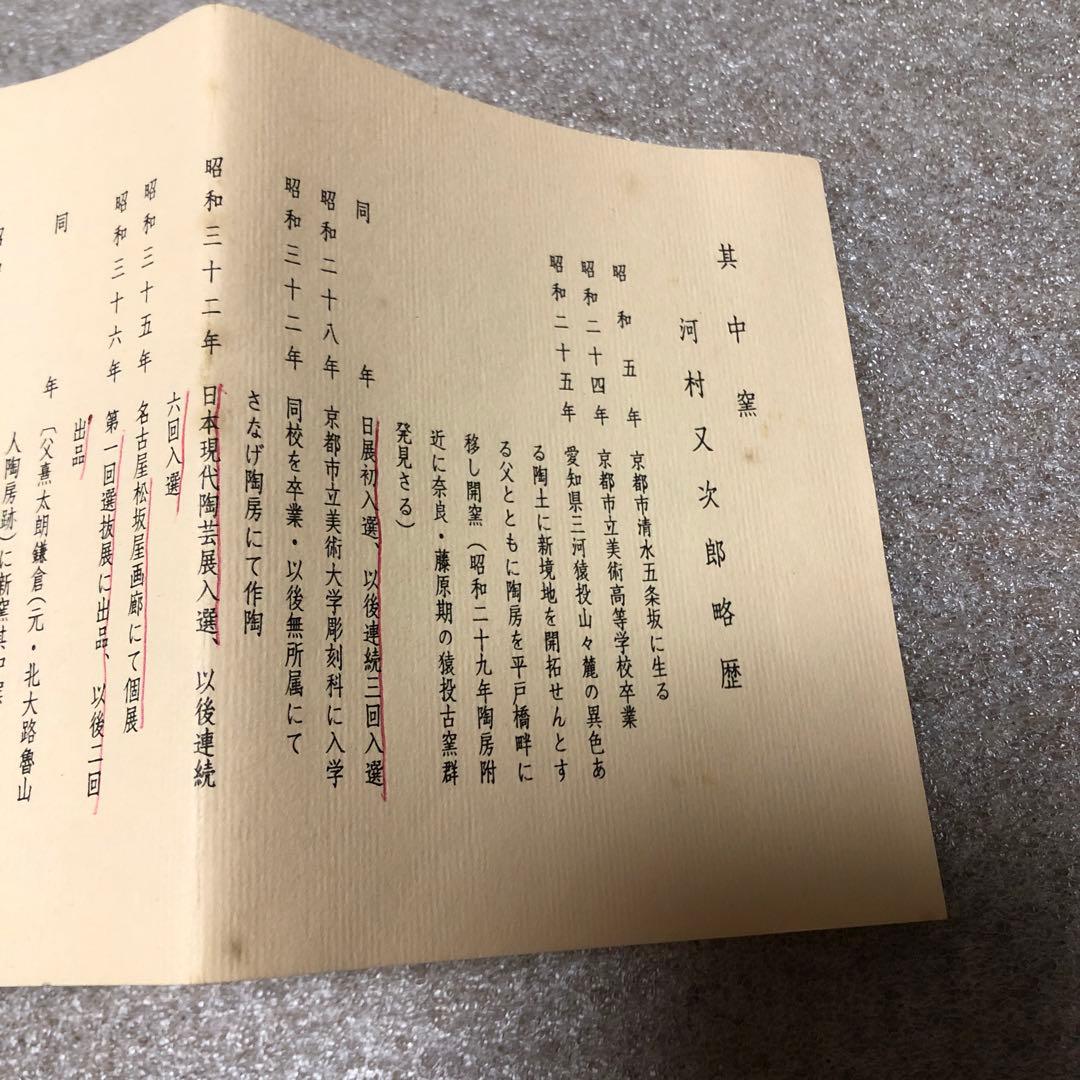 其中窯
河村又次郎略歴
昭和五年 京都市清水五条坂に生る
昭和二十四年 京都市立美術高等学校卒業
昭和二十五年 愛知県三河猿投山々麓の異色あ
る陶土に新境地を開拓せんとす
る父とともに陶房を平戸橋畔に
移し開窯(昭和二十九年陶房附
近に奈良・藤原期の猿投古窯群
発見さる)
同年 日展初入選、以後連続三回入選
昭和二十八年 京都市立美術大学彫刻科に入学
昭和三十二年 同校を卒業・以後無所属にて
さなげ陶房にて作陶
昭和三十二年 日本現代陶芸展入選、以後連続
六回入選
昭和三十五年 名古屋松坂屋画廊にて個展
昭和三十六年 第一回選抜展に出品、以後二回
出品
同年 (父熹太朗鎌倉(元・北大路魯山
人陶房跡)に新窯其中窯